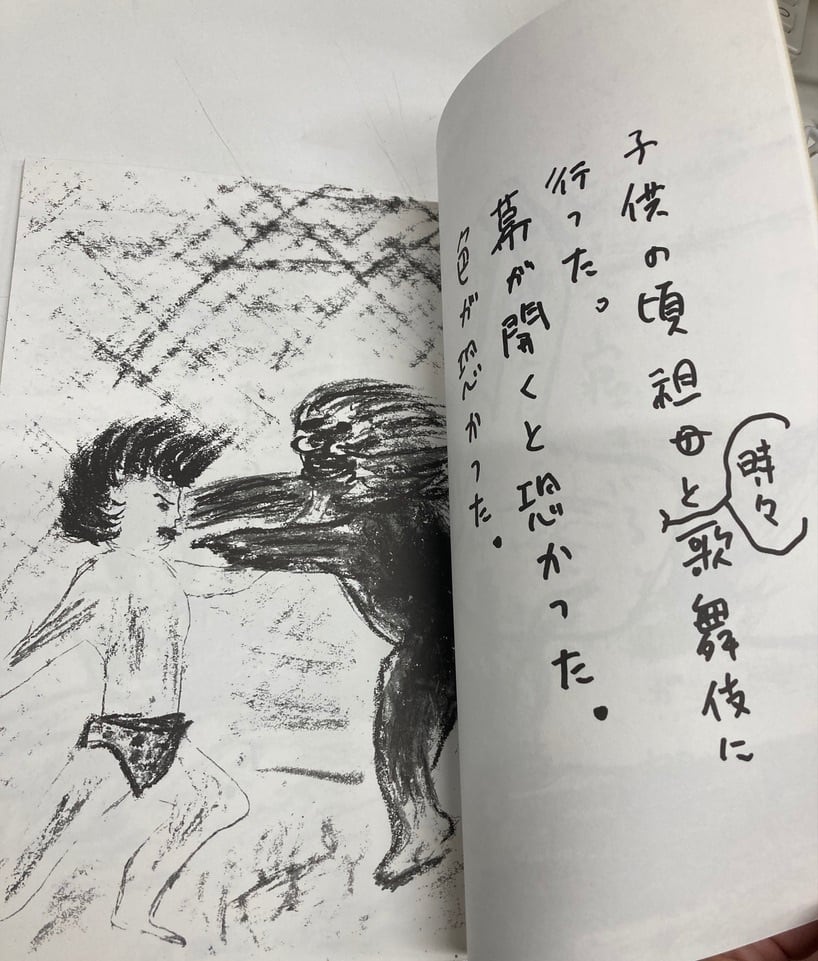 子供の頃祖母と時々歌舞伎に
行った。
幕が開くと恐かった。
色が恐かった。